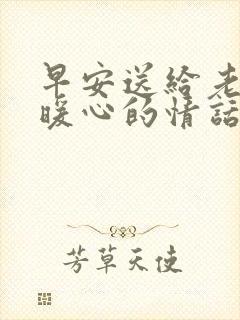 早安送給老
暖心的情話
芳草天使